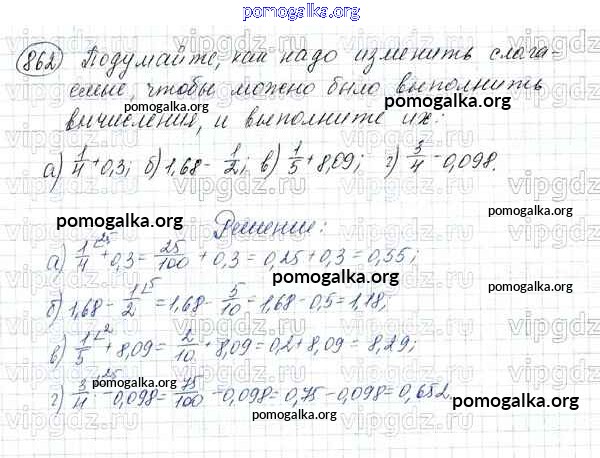 pomogalka.org
862 Подумайте, как надо изменить слага-
емые, чтобы можно было выполнить
вычисления, и выполните их:
а) 1/4 + 0,3; б) 1,68 - 1/2; в) 1/5 + 8,09; г) 3/4 - 0,098.
pomogalka.org
pomogalka.org
pomogalka.org
pomogalka.org
Решение:
а) 1/4 ∟25 + 0,3 = 25/100 + 0,3 = 0,25 + 0,3 = 0,55;
pomogalka.org
б) 1,68 - 1/2 ∟5 = 1,68 - 5/10 = 1,68 - 0,5 = 1,18;
в) 1/5 ∟2 + 8,09 = 2/10 + 8,09 = 0,2 + 8,09 = 8,29;
pomogalka.org
г) 3/4 ∟25 - 0,098 = 75/100 - 0,098 = 0,75 - 0,098 = 0,652.
pomogalka.org
pomogalka.org
vipgdz.com